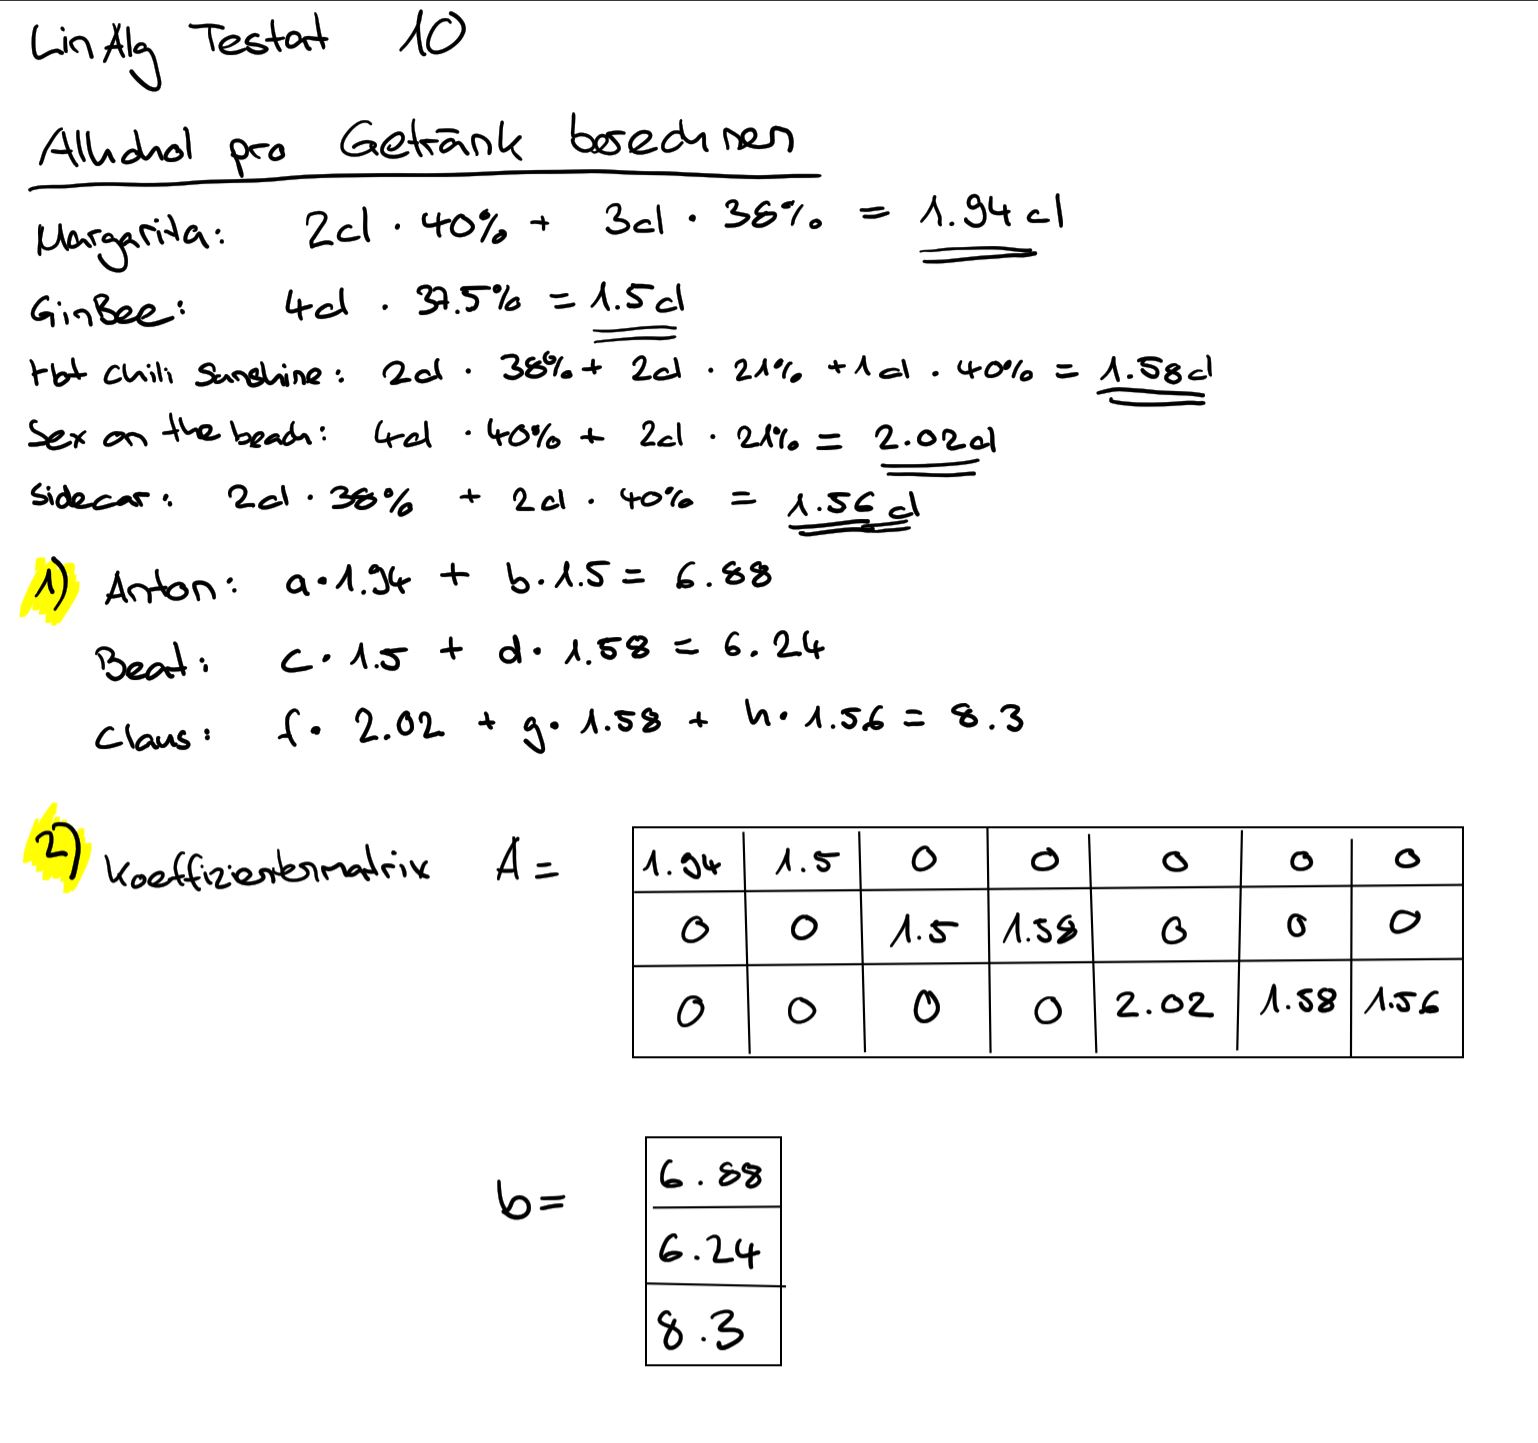 LinAlg Testat 10
Alkohol pro Getränk berechnen
Margarita: 2cl · 40% + 3cl · 38% = 1.94 cl
GinBee: 4cl · 37.5% = 1.5cl
Hot chili Sunshine: 2cl · 38% + 2cl · 21% + 1cl · 40% = 1.58cl
Sex on the beach: 4cl · 40% + 2cl · 21% = 2.02cl
Sidecar: 2cl · 38% + 2cl · 40% = 1.56 cl
1) Anton: a·1.94 + b·1.5 = 6.88
Beat: c·1.5 + d·1.58 = 6.24
Claus: f· 2.02 + g·1.58 + h·1.56 = 8.3
2) Koeffizientenmatrix A = 1.94 1.5 0 0 0 0 0
0 0 1.5 1.58 0 0 0
0 0 0 0 2.02 1.58 1.56
b = 6.88
6.24
8.3